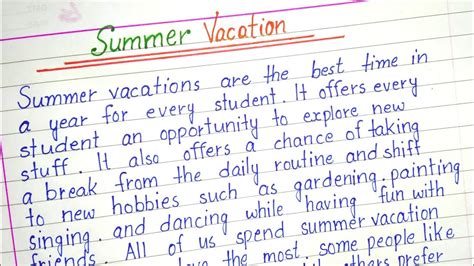 Summer Vacation
Summer vacations are the best time in
a year for every student. It offers every
student an opportunity to explore new
stuff. It also offers a chance of taking
a break from the daily routine and shift
to new hobbies such as gardening. painting
singing. and dancing while having fun with
friends. All of us spend summer vacation
love the most. some people like
others prefer